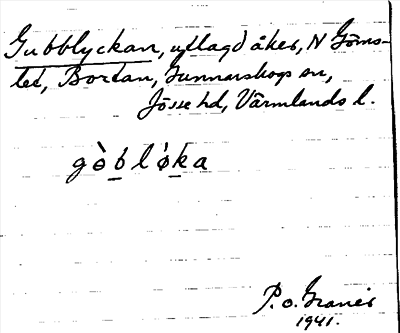 Gubblyckan, utlagd åker, N Töms-
tet, Bortan, Gunnarskogs sn,
Jösse hd, Värmlands l.
gòbḷòḳa
P. o. Granér
1941.